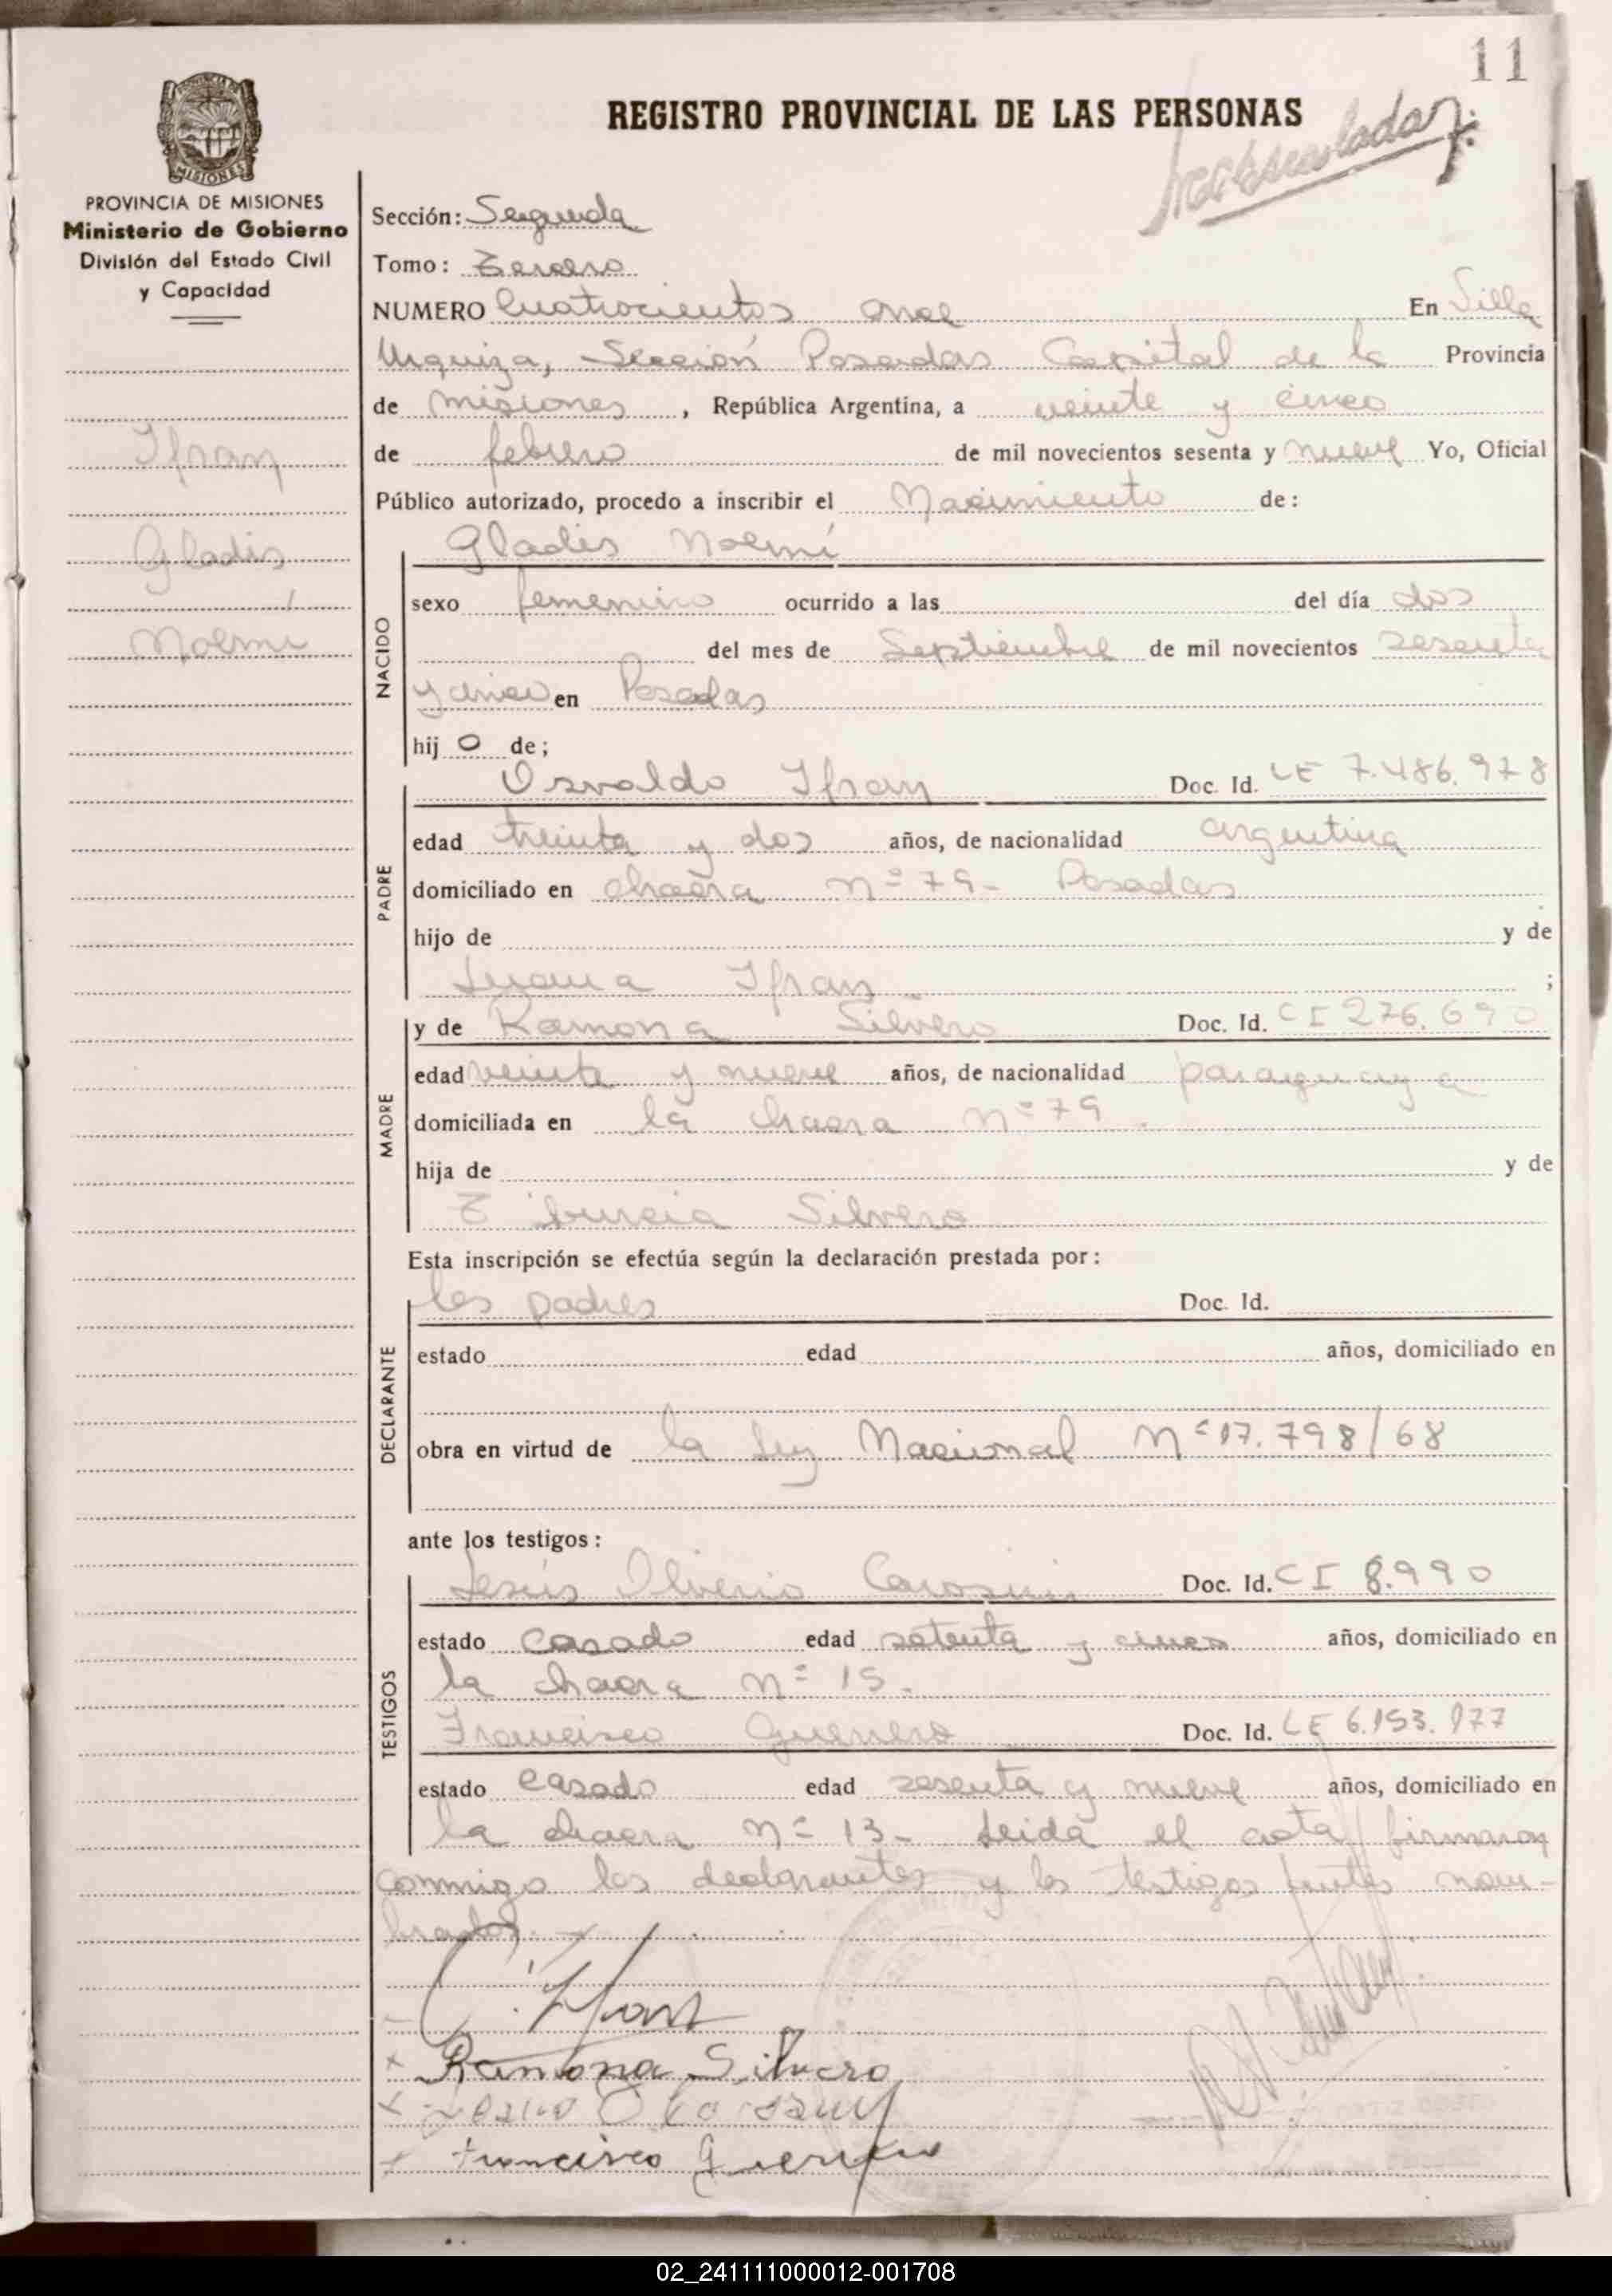 11
REGISTRO PROVINCIAL DE LAS PERSONAS
MISIONES
PROVINCIA DE MISIONES
Ministerio de Gobierno
División del Estado Civil
y Capacidad
Ifran
Gladis
Noemí
Sección: Segunda
Tomo: Tercero
NUMERO Cuatrocientos once En Villa
Urquiza, Sección Posadas Capital de la Provincia
de Misiones, República Argentina, a veinte y cinco
de febrero de mil novecientos sesenta y nueve Yo, Oficial
Público autorizado, procedo a inscribir el Nacimiento de:
NACIDO
Gladis Noemí
sexo femenino ocurrido a las del día dos
del mes de Septiembre de mil novecientos sesenta
y cinco en Posadas
hij o de;
PADRE
Osvaldo Ifran Doc. Id. LE 7.486.978
edad treinta y dos años, de nacionalidad argentina
domiciliado en chacra nº 79- Posadas
hijo de y de
Juana Ifran ;
MADRE
y de Ramona Silvero Doc. Id. CI 276.690
edad veinte y nueve años, de nacionalidad paraguaya
domiciliada en la chacra nº 79.
hija de y de
Tiburcia Silvero
Esta inscripción se efectúa según la declaración prestada por:
DECLARANTE
los padres Doc. Id.
estado edad años, domiciliado en
obra en virtud de la Ley Nacional Nº 17.798/68
ante los testigos:
TESTIGOS
Jesús Oliverio Doc. Id. CI 8.990
estado casado edad setenta y cinco años, domiciliado en
la chacra nº 15.
Francisco Guerrero Doc. Id. LE 6.153.177
estado casado edad sesenta y nueve años, domiciliado en
la chacra nº 13- Leida el acta firmaron
conmigo los declarantes y los testigos antes nom-
brados.-
Ifran
x Ramona Silvero
x
x Francisco Guerrero
02_241111000012-001708